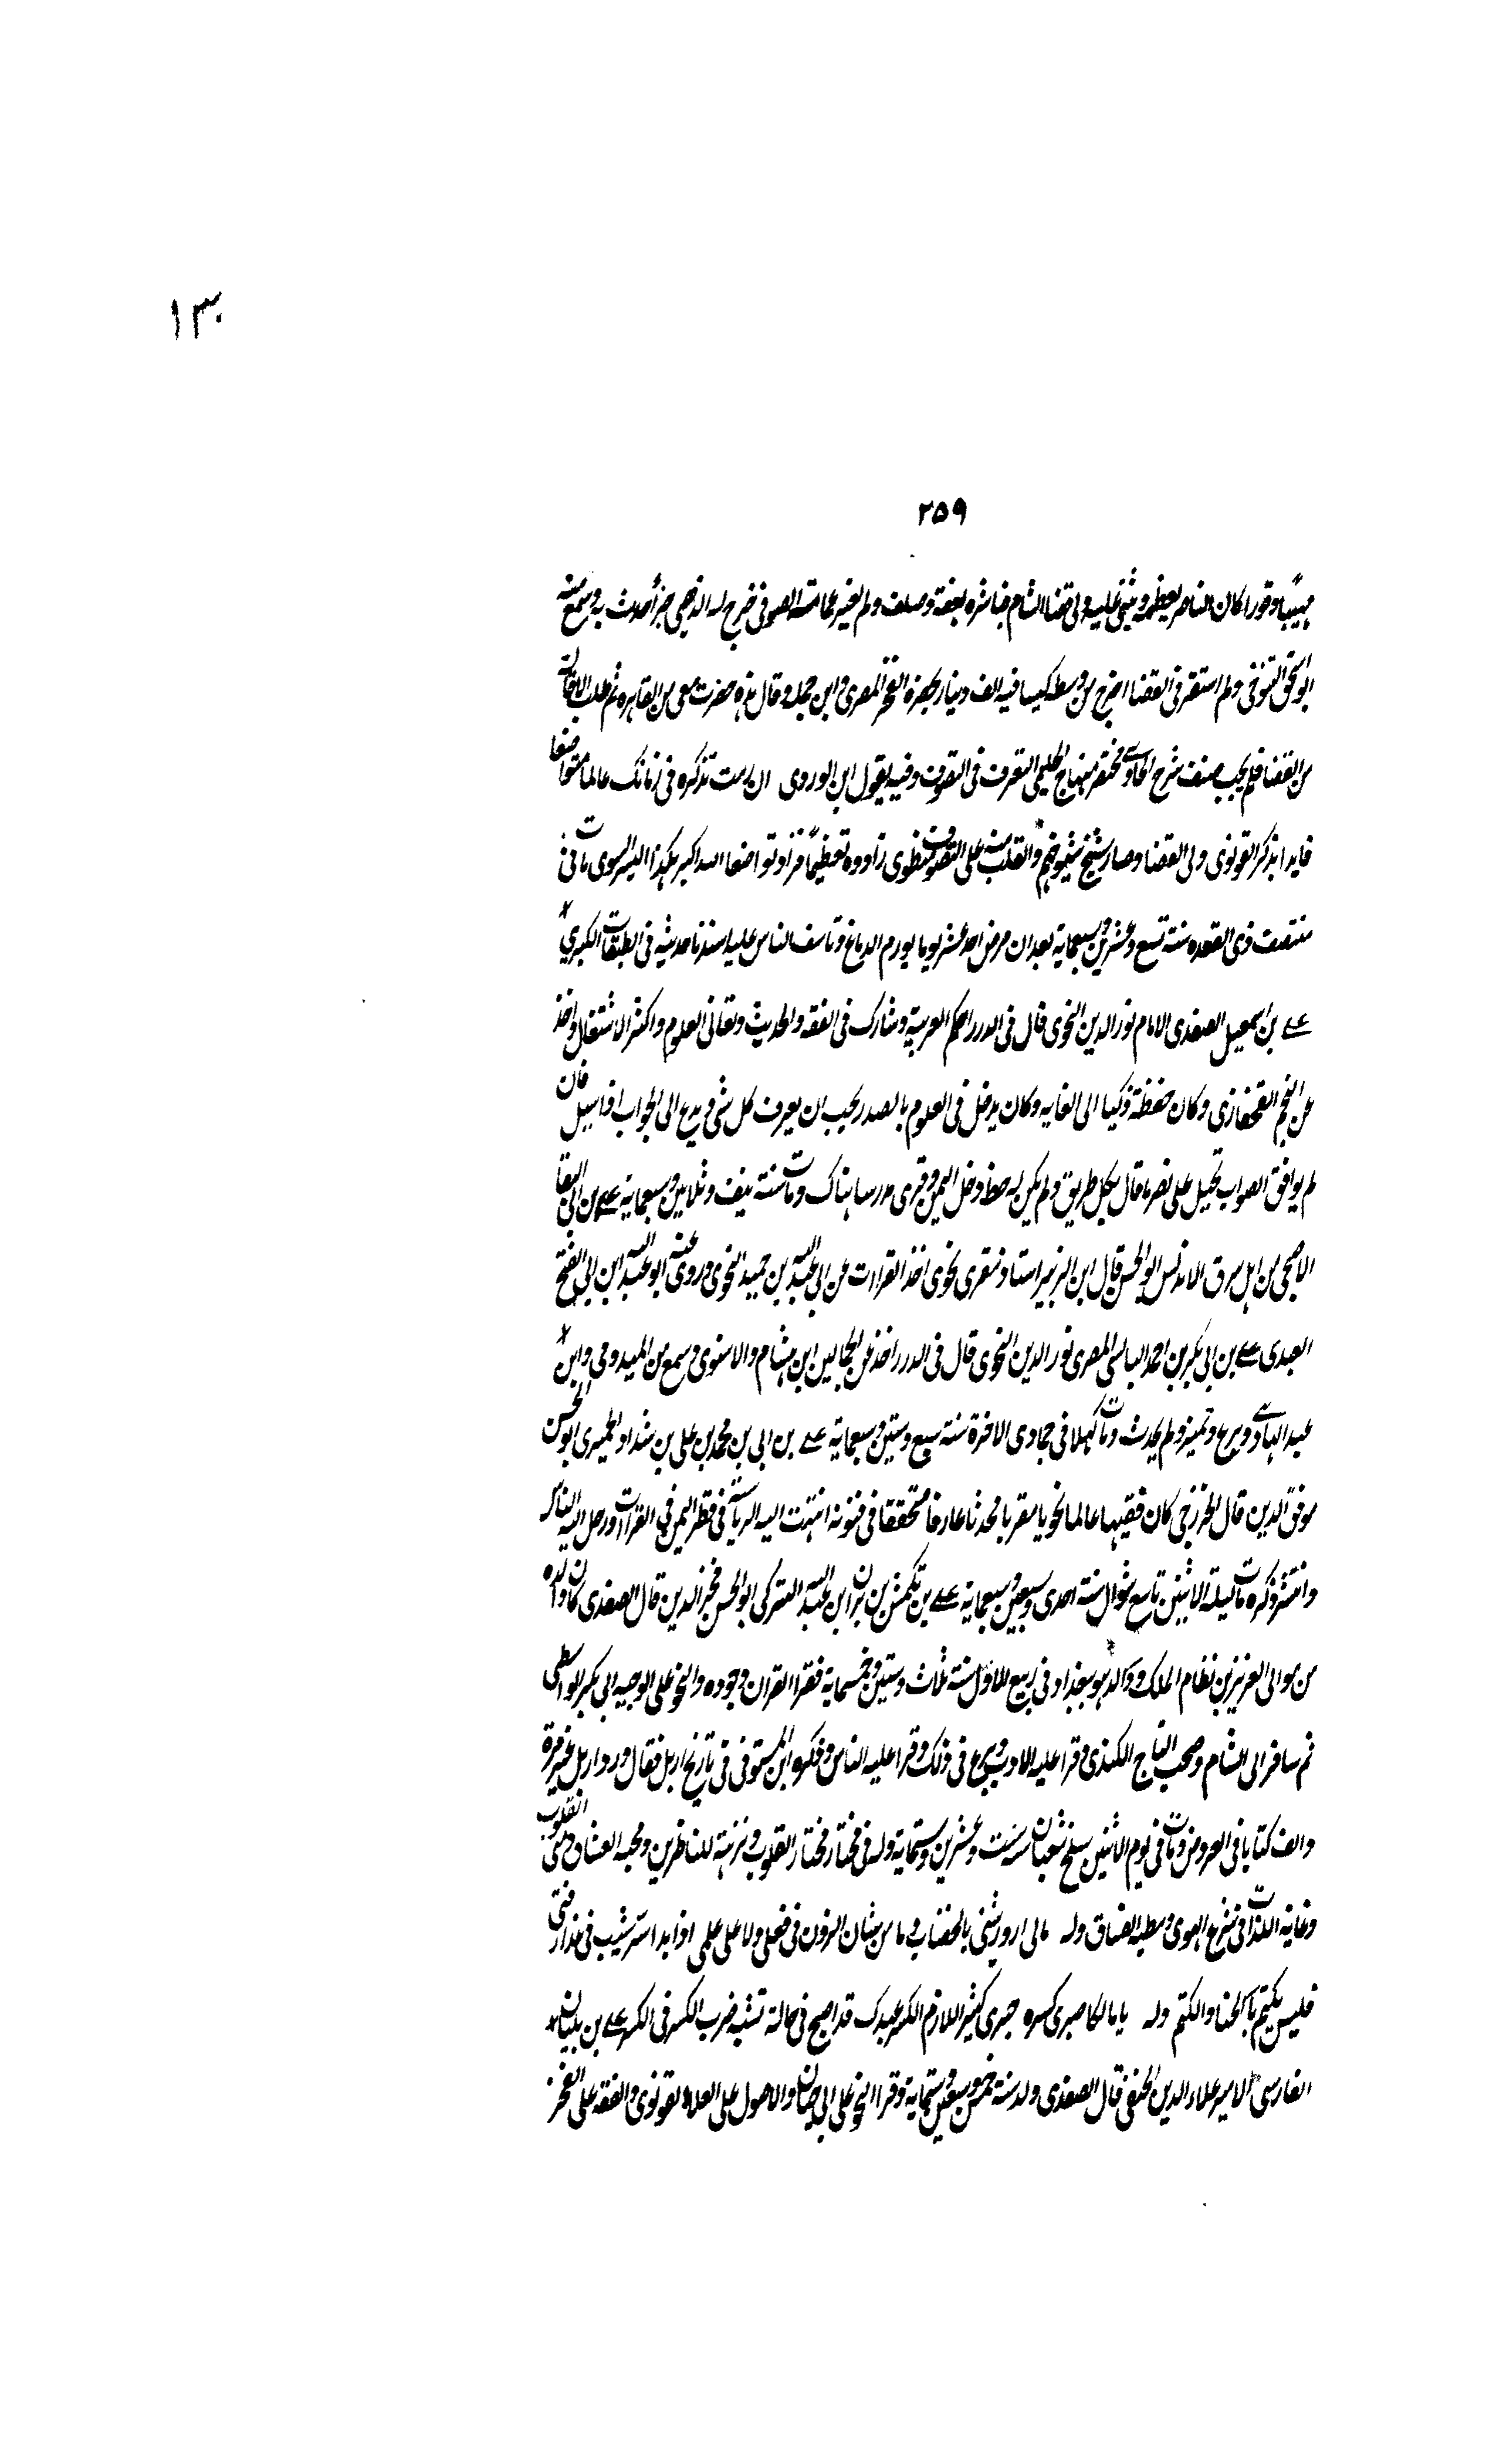 ١٣٠
٢٥٩
مهيبا وقورا كان الناصر يعظمه ويثني عليه ولي قضا الشام فباشره بعفة وصلف ولم يغير عمامته الصوفي خرج له الذهبي جزأ حدث به وسمع منه
ابواسحق التنوخي ولم استقر في القضا اخرج من وسطه كيسا فيه الف دينار بحضرة الفخر المصري وابن جملة وقال هذه حضرت معي من القاهره ثم طلب الاقالة
من القضا فلم يجب صنف شرح الحاوي مختصر منهاج الحليمي التعرف في التصوف وفيه يقول ابن الوردي ان رمت تذكره في زمانك عالما متواضعا
فابدا بذكر القونوي ولي القضا وصار شيخ شيوخهم والقلب منه على التصوف منطوي زادوه تعظيما فزاد تواضعا الله اكبر هكذا البشر السوي مات في
منتصف ذي القعده سنة تسع وعشرين وسبعماية بعد ان مرض احد عشر يوما بورم الدماغ وتاسف الناس عليه اسندنا حديثه في الطبقات الكبري
علے بن اسمعيل الصفدي الامام نور الدين النحوي قال في الدرر احكم العربية وشارك في الفقه والحديث وتعاني العلوم واكثر الاشتغال واخذ
عن النجم القحفازي وكان حفظة ذكيا الى الغايه وكان يدخل في العلوم بالصدر يحب ان يعرف كل شي ويدع الى الجواب اذا سيل فان
لم يوافق الصواب تحيل على نصر ما قال بكل طريق ولم يكن له حظ دخل اليمن وقري مدرسا هناك ومات سنة نيف وثلاثين وسبعماية علے بن ابي البقا
الاصبحي من اهل سرق الاندلس ابو الحسن قال ابن الزبير استاذ مقري نحوي اخذ القراءات عن ابي عبد الله بن حميد النحوي وروى عنه ابو عبد الله ابن ابي الفتح
العبدي علے بن ابي بكر بن احمد البالسي المصري نور الدين النحوي قال في الدرر اخذ عن الجمالين ابن هشام والاسنوي وسمع من الميدومي وابن
عبد الهادے وبرع وتميز ولم يحدث ومات كهلا في جمادى الاخرة سنة سبع وستين وسبعماية علے بن ابي بن محمد بن علي بن شداد الحميري ابو الحسن
موفق الدين قال الخزرجي كان فقيها عالما نحويا مقريا محدثا عارفا متحققا في فنونه انتهت اليه الرياسة في قطر اليمن في القراات ورحل اليه الناس
وانتشر ذكره مات ليلة الاثنين تاسع شوال سنة احدى وسبعين وسبعماية علے بن بكمش بن نزان ابن عبد الله التركي ابو الحسن فخر الدين قال الصفدي كان والده
من موالي العزيز بن نظام الملك وولد هو ببغداد في ربيع الاول سنة ثلاث وستين وخمسماية فقرا القران وجوده والنحو على الوجيه ابي بكر الواسطي
ثم سافر الى الشام وصحب التاج الكندي وقرا عليه الادب وبرع في ذلك وقرا عليه الناس وذكره ابن المستوفي في تاريخ اربل فقال ورد اربل غير مرة
والف كتابا في العروض ومات في يوم الاثنين سلخ شعبان سنة ست وعشرين وستماية وله في مختار مختار القلوب ونزهة للناظرين ومحبه العشاق ومني القلوب
وغاية اللذات في شرع الهوى وسطيه العشاق وله مالي ازور شيبي بالخضاب وما من شان الزور في فعلي ولا علمي اذا بدا سر شيب في عذار فتي
فليس يكتم بالحنا والكتم وله يا مالكا صبري كسره جبري كثير اللازم الكسر عبدك قد اصبح في حالة تشبه ضرب الكسر في الكسر علے بن بلبان
الفارسي الامير علاء الدين الحنفي قال الصفدي ولد سنة خمس وسبعين وستماية وقرا النحو على ابي حيان والاصول على العلاء القونوي والفقه على الفخر